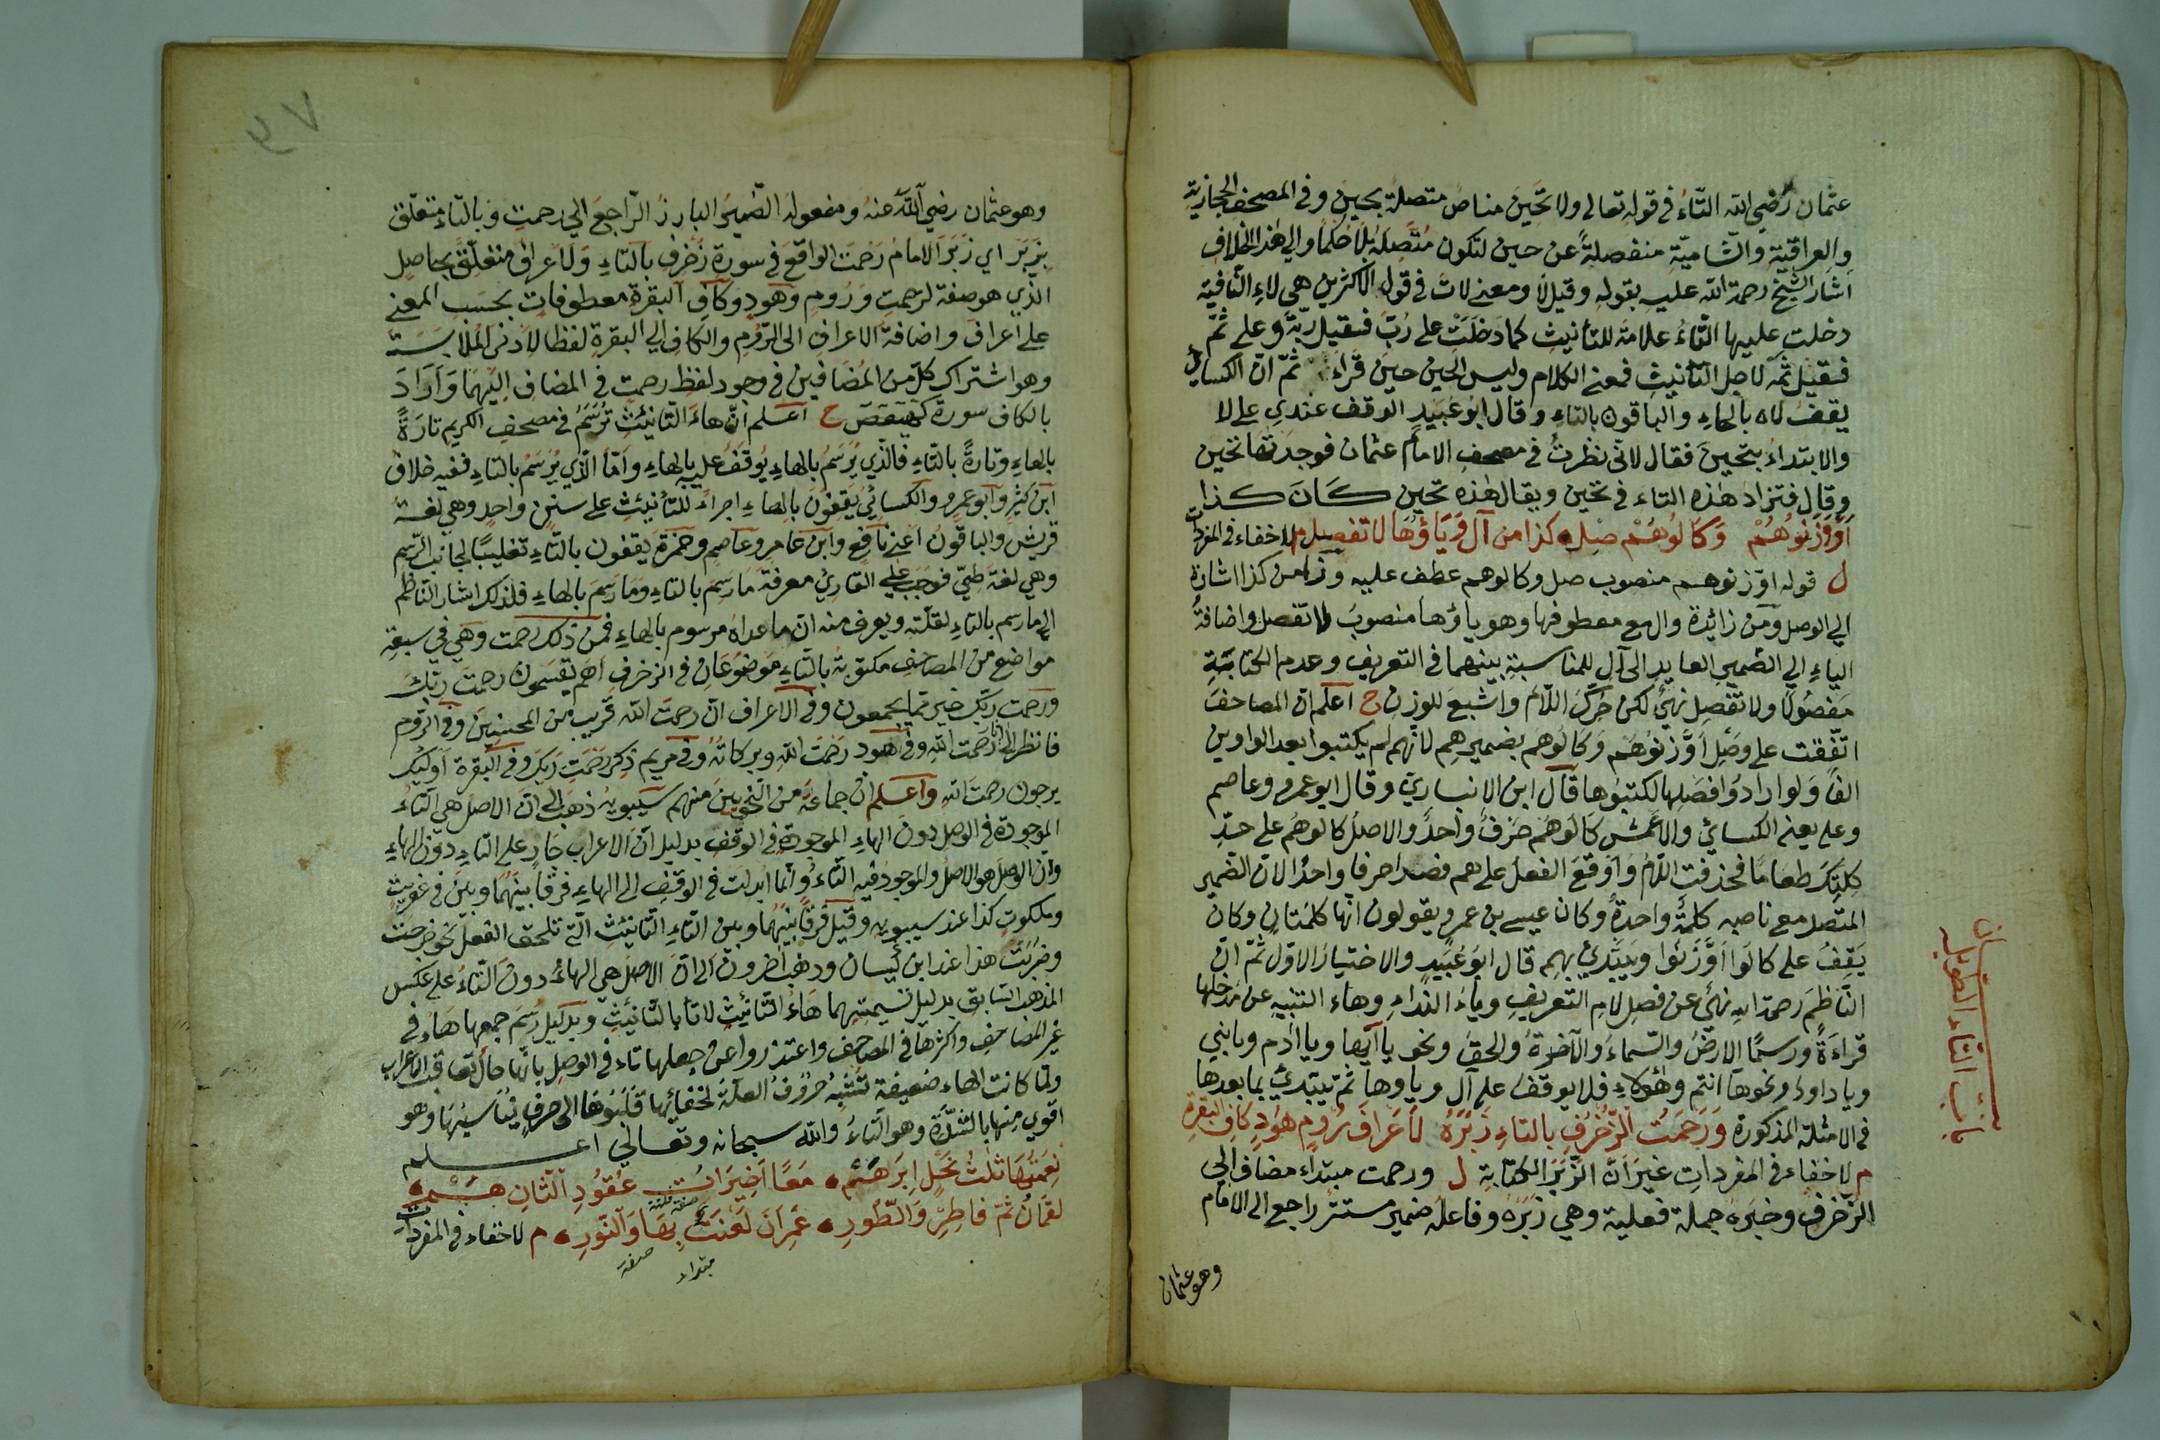 عثمان رضي الله التاء في قوله تعالى ولا تحين مناص متصلة بحين وفي المصحف الحجازية
والعراقية والشامية منفصلة عن حين لتكون متصلة بلا حكما والى هذا الخلاف
اشار الشيخ رحمة الله عليه بقوله وقيل لا ومعنى لات في قول الاكثرين هي لاء النافية
دخلت عليها التاء علامة للتأنيث كما دخلت على رب فقيل ربة وعلى ثم
فقيل ثمة لاجل التأنيث فمعنى الكلام وليس الحين حين قراء ثم ان الكسائي
يقف لاه بالهاء والباقون بالتاء وقال ابو عبيد الوقف عندي على لا
والابتداء بتحين فقال لاني نظرت في مصحف الامام عثمان فوجدتها تحين
وقال فتزاد هذه التاء في تحين ويقال هذه تحين كان كذا
او وزنوهم وكالوهم صل كذا من آل ويا وها لا تفصل م لا خفاء في المفردات
ل قوله او زنوهم منصوب صل وكالوهم عطف عليه وذا من كذا اشارة
الى الوصل ومن زائدة وال مع معطوفها وهو ياؤها منصوب لا تفصل واضافة
الياء الى الضمير العايد الى آل للمناسبة بينهما في التعريف وعدم الكتابة
مفصولا ولا تفصل نهي لكن حرك اللام واشبع للوزن ح اعلم ان المصاحف
اتفقت على وصل او زنوهم وكالوهم بضميرهم لانهم لم يكتبوا بعد الواوين
الفا ولو ارادوا فصلها لكتبوها قال ابن الانباري وقال ابو عمرو وعاصم
وعلي يعني الكسائي والاعمش كالوهم حرف واحد والاصل كالوهم على حد
كلتك طعاما فحذفت اللام واوقع الفعل على هم فصار حرفا واحدا لان الضمير
المتصل مع ناصبه كلمة واحدة وكان عيسى بن عمر يقولون انها كلمتان وكان
يقف على كالوا او زنوا ويبتدئ بهم قال ابو عبيد والاختيار الاول ثم ان
الناظم رحمه الله نهى عن فصل لام التعريف وياء النداء وهاء التنبيه عن مدخلها
قراءة ورسما الارض والسماء والآخرة والحق ونحو يا ايها ويا ادم ويا بني
ويا داود ونحوها انتم وهؤلاء فلا يوقف على آل ويا وها ثم يبتدئ بما بعدها
في الامثلة المذكورة ورحمت الزخرف بالتاء زبره لاعراف روم هود كاف البقرة
م لا خفاء في المفردات غير ان الزبر الكتابة ل ورحمت مبتداء مضاف الى
الزخرف وخبره جملة فعلية وهي زبره وفاعله ضمير مستتر راجع الى الامام
وهو عثمان
وهو عثمان رضي الله عنه ومفعوله الضمير البارز الراجع الى رحمت وبالتاء متعلق
بزبر اي زبر الامام رحمت الواقع في سورة زخرف بالتاء ولاعراف متعلق بحاصل
الذي هو صفة لرحمت وروم وهود وكاف البقرة معطوفات بحسب المعنى
على اعراف واضافة الاعراف الى الروم والكاف الى البقرة لفظا لادنى الملابسة
وهو اشتراك كل من المضافين في وجود لفظ رحمت في المضاف اليهما واراد
بالكاف سورة كهيعص ح اعلم ان هاء التأنيث ترسم في مصحف الكريم تارة
بالهاء وتارة بالتاء فالذي يرسم بالهاء يوقف عليه بالهاء واما الذي يرسم بالتاء ففيه خلاف
ابن كثير وابو عمرو والكسائي يقفون بالهاء اجراء للتأنيث على سنن واحد وهي لغة
قريش والباقون اعني نافع وابن عامر وعاصم وحمزة يقفون بالتاء تغليبا لجانب الرسم
وهي لغة طيّ فوجب على القاري معرفة ما رسم بالتاء وما رسم بالهاء فلذلك اشار الناظم
الى ما رسم بالتاء لقلته ويعرف منه ان ما عداه مرسوم بالهاء فمن ذلك رحمت وهي في سبعة
مواضع من المصاحف مكتوبة بالتاء موضوعان في الزخرف اهم يقسمون رحمت ربك
ورحمت ربك خير مما يجمعون وفي الاعراف ان رحمت الله قريب من المحسنين وفي الروم
فانظر الى اثار رحمت الله وفي هود رحمت الله وبركاته وفي مريم ذكر رحمت ربك وفي البقرة اولئك
يرجون رحمت الله واعلم ان جماعة من النحويين منهم سيبويه ذهب الى ان الاصل هي التاء
الموجودة في الوصل دون الهاء الموجودة في الوقف بدليل ان الاعراب جار على التاء دون الهاء
وان الوصل هو الاصل والموجود فيه التاء وانما ابدلت في الوقف الى الهاء فرقا بينهما وبين في عفريت
وملكوت كذا عند سيبويه وقيل فرقا بينهما وبين التاء التأنيث التي تلحق الفعل نحو خرجت
وضربت هذا عند ابن كيسان وذهب اخرون الى ان الاصل هي الهاء دون التاء على عكس
المذهب السابق بدليل تسيمتهما هاء التأنيث لا تا بالتأنيث وبدليل رسم جمعها هاء في
غير المصاحف واكثرها في المصاحف واعتذروا عن جعلها تاء في الوصل بانها حال تعاقب الاعراب
ولما كانت الهاء ضعيفة تشبه حروف العلة لخفائها قلبوها الى حرف يناسبها وهو
اقوي منها بالشدة وهو التاء والله سبحانه وتعالى اعلم
نعمتها ثلث نحل ابرهم معا اخيرات عقود الثان هم
لقمان ثم فاطر والطور عمران لعنت بها والنور م لا خفاء في المفردات
صفة
مبتداء
باب التاء